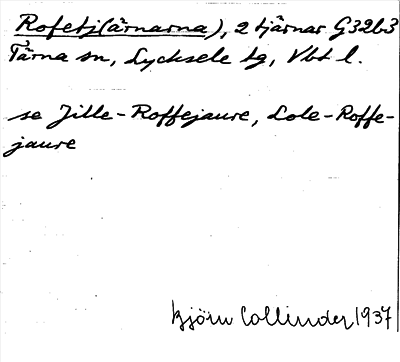 Rofetj(ärnarna), 2 tjärnar G32b3
Tärna sn, Lycksele lg, Vbt l.
se Jille-Roffejaure, Lole-Roffe-
jaure
Björn Collinder 1937